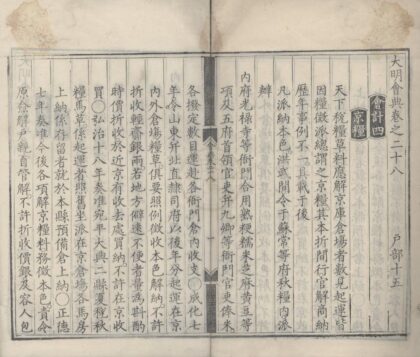 大明會典卷之二十八　戶部十五
會計四
京糧
天下稅糧草料應解京庫倉場者數見起運皆
因糧徵派總謂之京糧其本折間行官解商納
歷年事例不一具載于後
凡派納本色洪武間令于蘇常等府秋糧內派
辦
內府光祿寺等衙門合用熟粳糯米芝麻黃豆等
項及五府首領官吏幷九卿等衙門官吏俸米
各撥定數目運赴各衙門倉內收支○成化七
年令山東幷北直隸司府以後年分起運在京
內外倉場糧草俱要照例徵收本色解納不許
折收輕齎銀兩若地方僻遠不便者量爲斟酌
時價折收於近京有收去處買納不許在京收
買○弘治十八年奏准宛平大興二縣夏稅秋
糧馬草係起運者照舊坐派在京倉場各馬房
上納係存留者就於本縣預備倉上納○正德
七年奏准今後各項解京糧料務徵本色責令
原僉解戶親自管解不許折收價銀及容人包